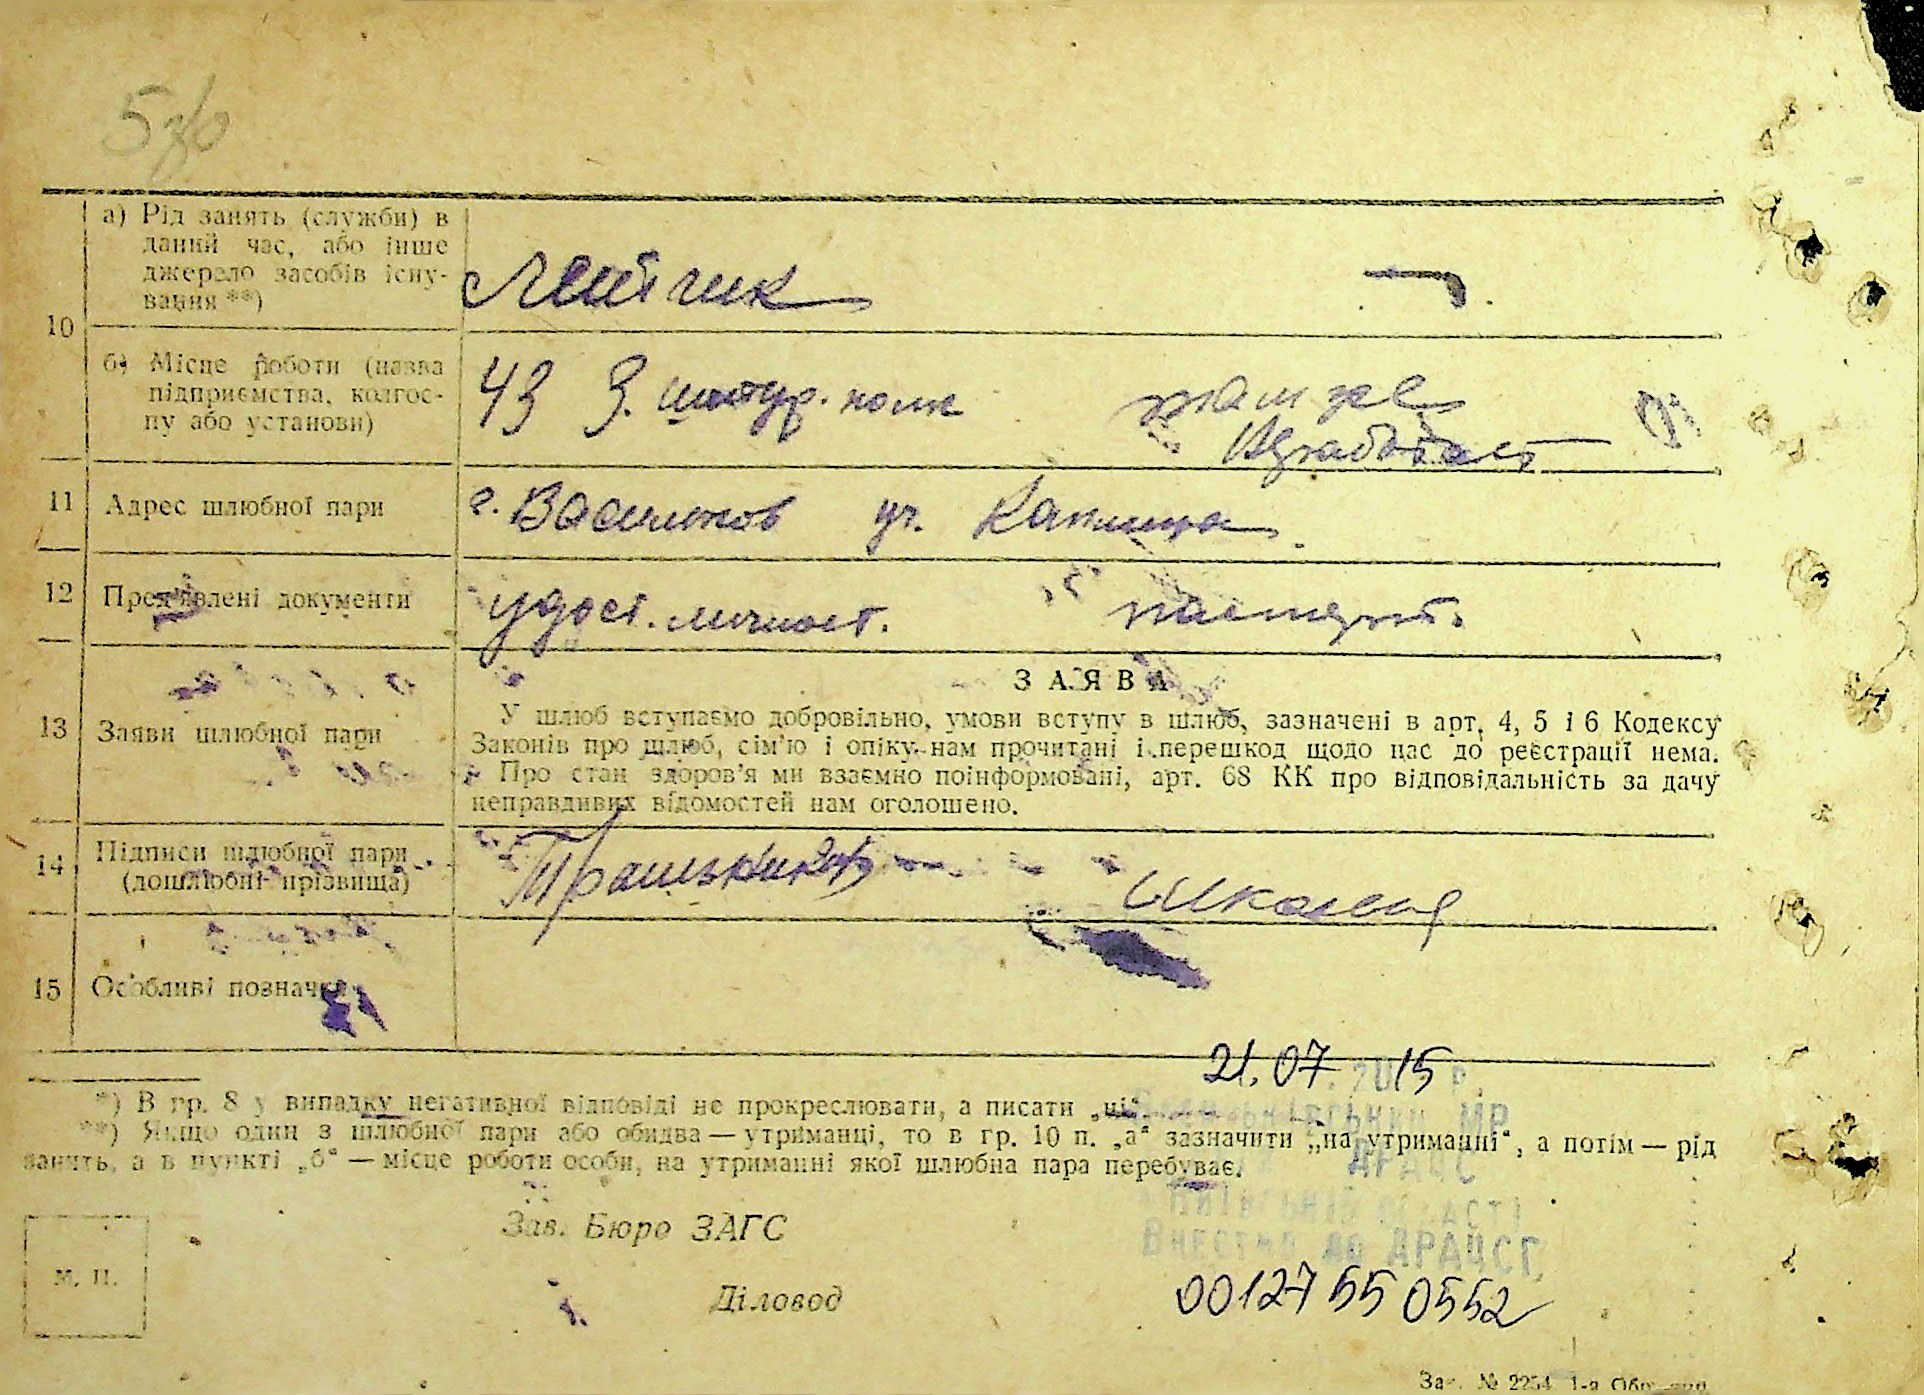 а) Рід занять (служби) в
даний час, або інше
джерело засобів існу-
вання **)
Летчик
10
б) Місце роботи (назва
підприємства, колгос-
пу або установи)
43 З. штур. полк
11 Адрес шлюбної пари г. Васильков ул.
12 Пред'явлені документи удост. личност. паспорт.
ЗАЯВА
13 Заяви шлюбної пари
У шлюб вступаємо добровільно, умови вступу в шлюб, зазначені в арт. 4, 5 і 6 Кодексу
Законів про шлюб, сім'ю і опіку нам прочитані і перешкод щодо нас до реєстрації нема.
Про стан здоров'я ми взаємно поінформовані, арт. 68 КК про відповідальність за дачу
неправдивих відомостей нам оголошено.
14 Підписи шлюбної пари
(дошлюбні прізвища)
15 Особливі позначки
21.07.2015 р.
*) В гр. 8 у випадку негативної відповіді не прокреслювати, а писати „ні“.
**) Якщо один з шлюбної пари або обидва — утриманці, то в гр. 10 п. „а“ зазначити „на утриманні“, а потім — рід
занять, а в пункті „б“ — місце роботи особи, на утриманні якої шлюбна пара перебуває.
МР
ДРАЦС
області
Внесено до ДРАЦСГ
Зав. Бюро ЗАГС
М. П.
Діловод
00127550552
Зак. № 2254